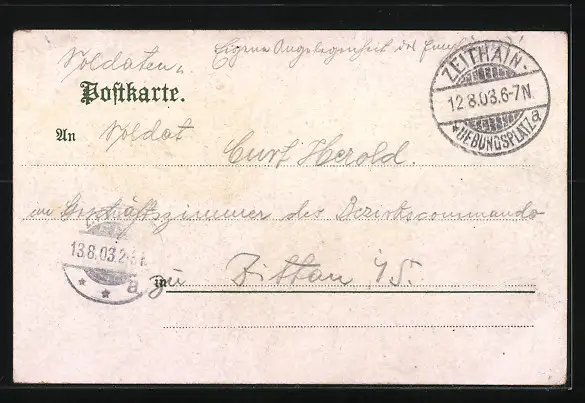 Soldaten„ Eigene Angelegenheit des Empfängers!
Postkarte.
ZEITHAIN-
12.8.03.6-7N.
*UEBUNGSPLATZ a
An Soldat
Curt Herold.
im Geschäftszimmer des Bezirkscommando
13.8.03.2-3N.
* * a
in zu Zittau i/S.